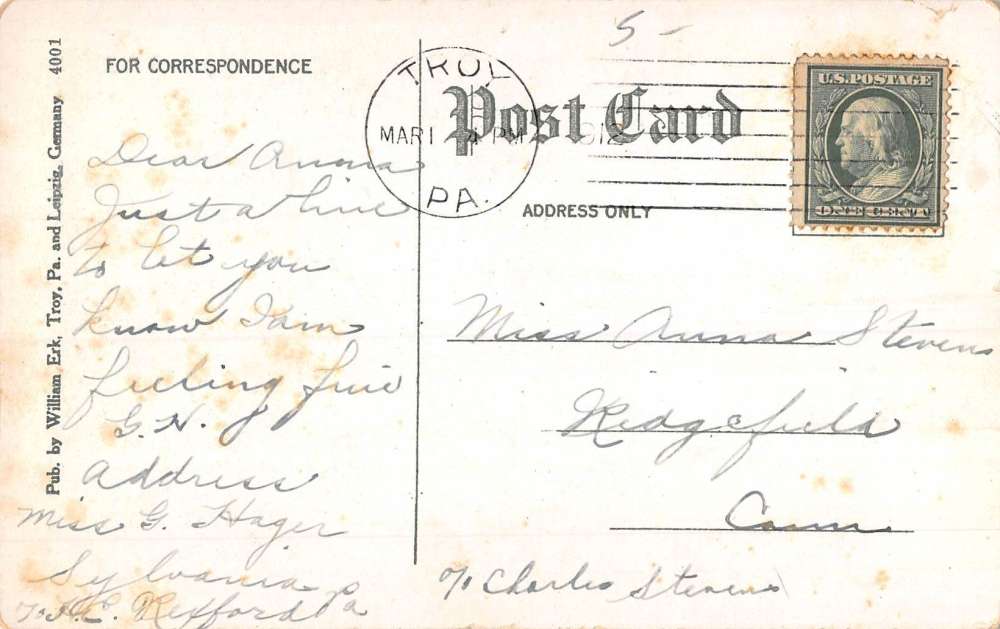 5-
FOR CORRESPONDENCE
Post Card
TROY
MAR 1 4 PM 1912
PA.
U.S. POSTAGE
ONE CENT
ADDRESS ONLY
Pub. by William Erk, Troy, Pa. and Leipzig, Germany 4001
Dear Anna
Just a line
to let you
know I am
feeling fine
G. H.
Address
Miss G. Hager
Sylvania Pa
% F. C. Rexford
Miss Anna Stevens
Ridgefield
Conn.
% Charles Stevens